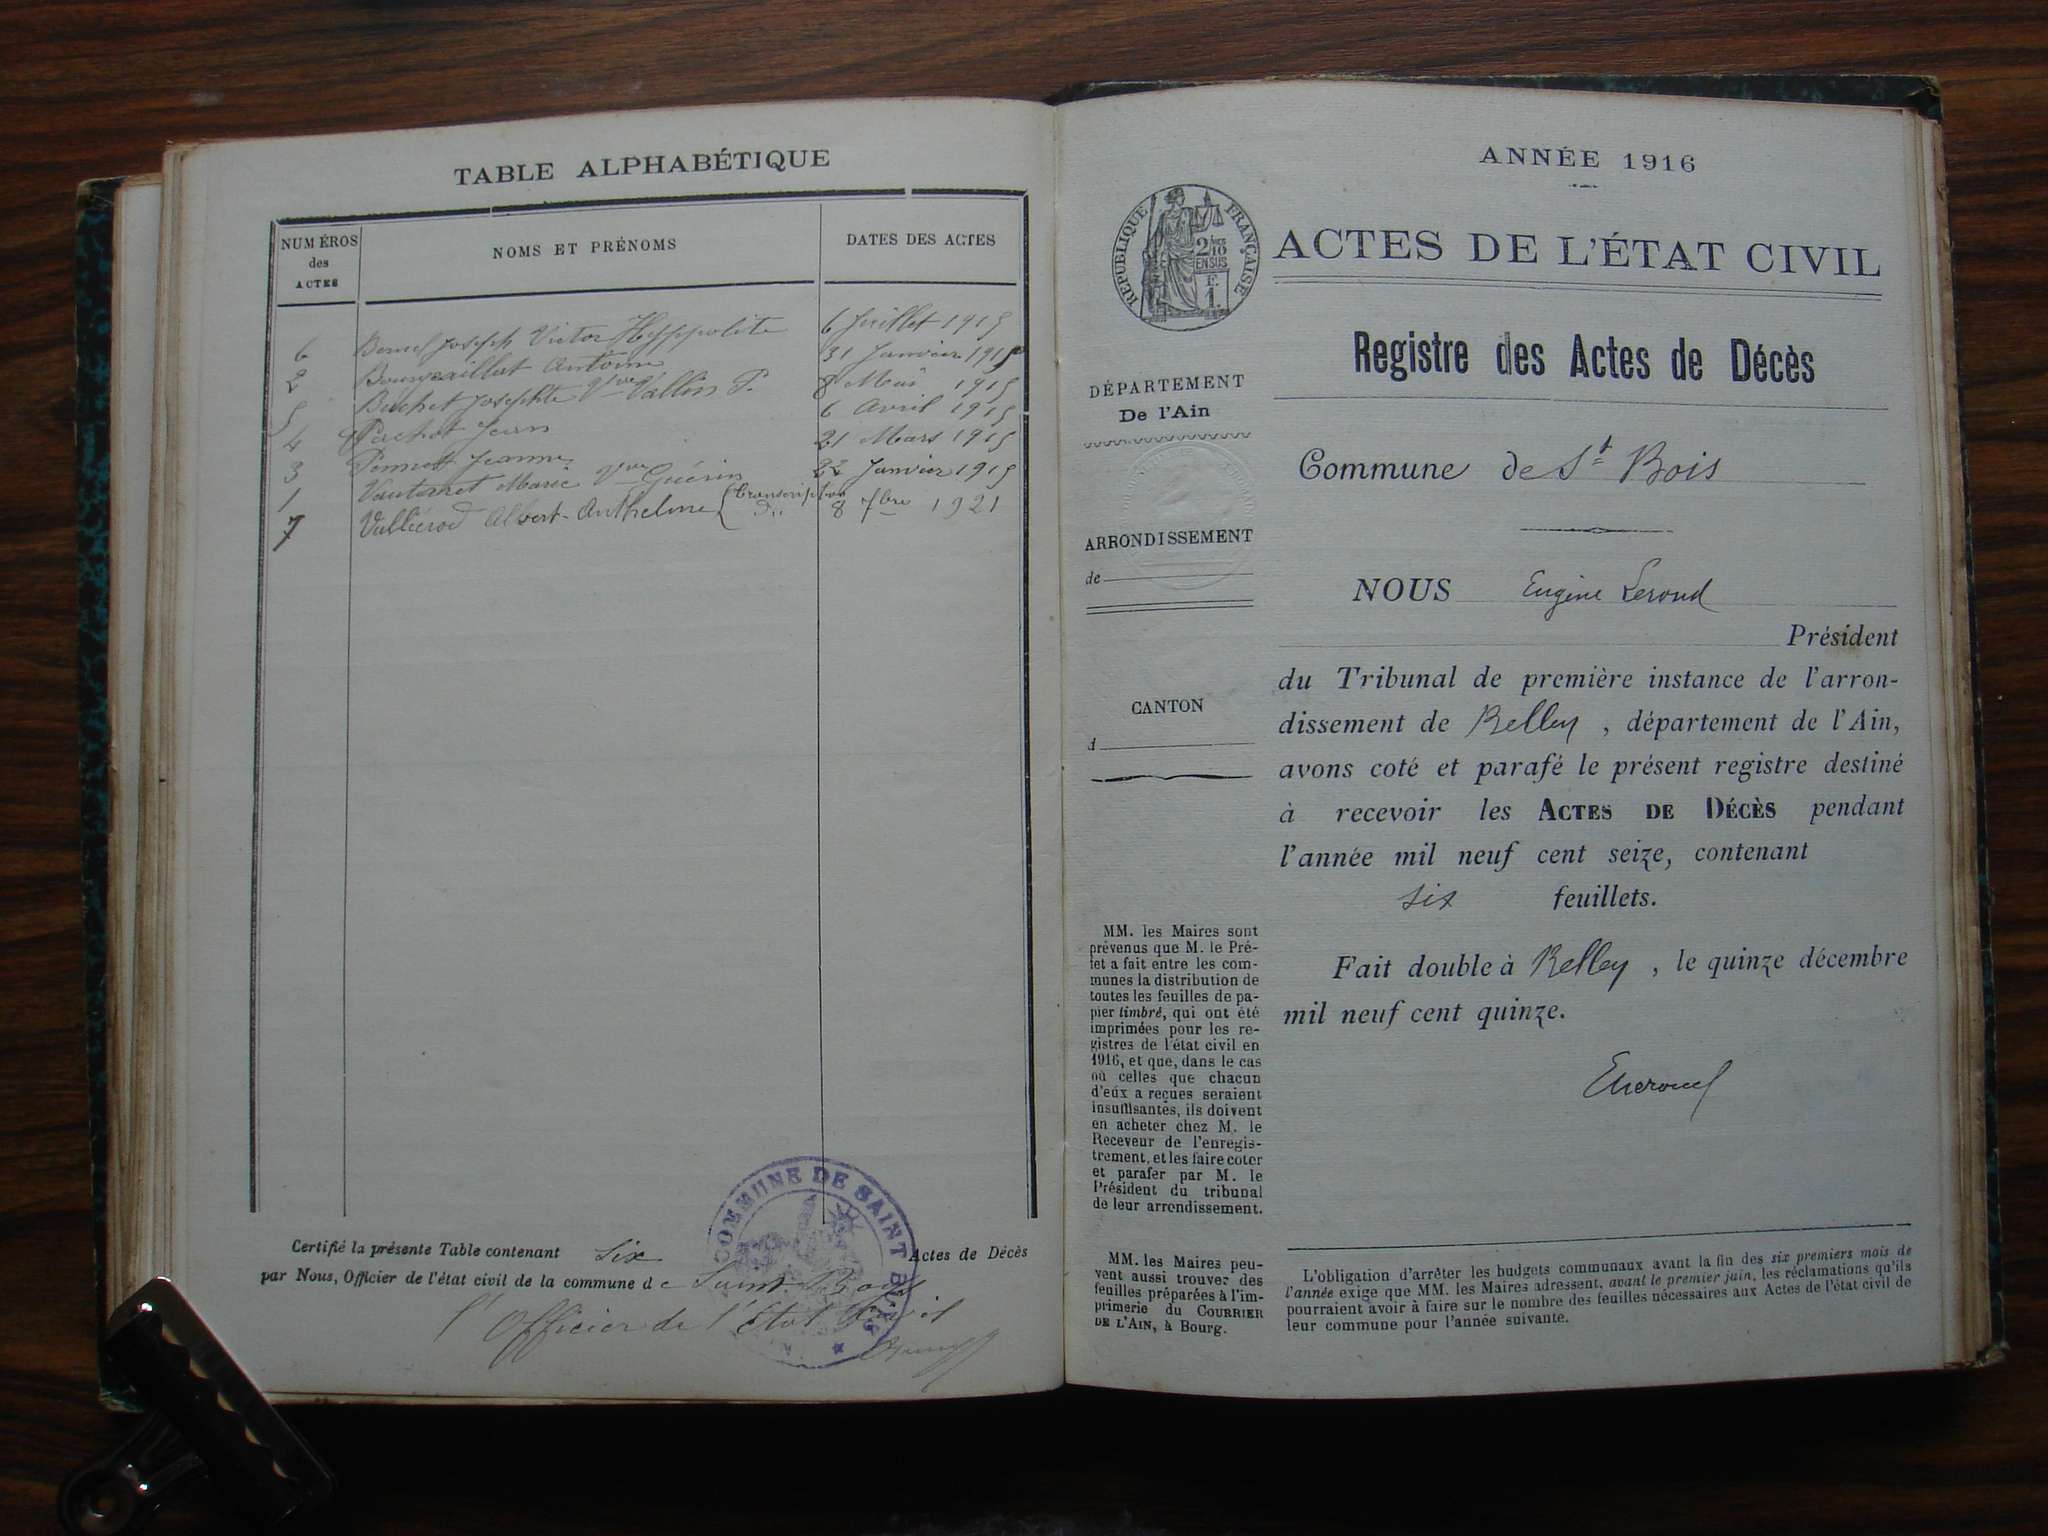 TABLE ALPHABÉTIQUE
NUMÉROS des ACTES
NOMS ET PRÉNOMS
DATES DES ACTES
6 Joseph Victor Hyppolite 6 Juillet 1915
2 Antoine 31 Janvier 1915
5 Buchet Josephte Vve Vallin P. 8 Mai 1915
4 Pachot Jean 6 Avril 1915
3 Jeanne 21 Mars 1915
1 Marie Vve Guérin 22 Janvier 1915
7 Valliérod Albert-Anthelme (transcription du) 8 7bre 1921
Certifié la présente Table contenant six Actes de Décès
par Nous, Officier de l'état civil de la commune de Saint-Bois
l'Officier de l'Etat Civil
COMMUNE DE SAINT BOIS
ANNÉE 1916
RÉPUBLIQUE FRANÇAISE
2/10 EN SUS
F.
1.
ACTES DE L'ÉTAT CIVIL
Registre des Actes de Décès
DÉPARTEMENT
De l'Ain
ARRONDISSEMENT
de
CANTON
d
MM. les Maires sont
prévenus que M. le Pré-
fet a fait entre les com-
munes la distribution de
toutes les feuilles de pa-
pier timbré, qui ont été
imprimées pour les re-
gistres de l'état civil en
1916, et que, dans le cas
où celles que chacun
d'eux a reçues seraient
insuffisantes, ils doivent
en acheter chez M. le
Receveur de l'enregis-
trement, et les faire coter
et parafer par M. le
Président du tribunal
de leur arrondissement.
MM. les Maires peu-
vent aussi trouver des
feuilles préparées à l'im-
primerie du COURRIER
DE L'AIN, à Bourg.
Commune de St Bois
NOUS Eugène Leroud
Président
du Tribunal de première instance de l'arron-
dissement de Belley, département de l'Ain,
avons coté et parafé le présent registre destiné
à recevoir les ACTES DE DÉCÈS pendant
l'année mil neuf cent seize, contenant
six feuillets.
Fait double à Belley, le quinze décembre
mil neuf cent quinze.
ELeroud
L'obligation d'arrêter les budgets communaux avant la fin des six premiers mois de
l'année exige que MM. les Maires adressent, avant le premier juin, les réclamations qu'ils
pourraient avoir à faire sur le nombre des feuilles nécessaires aux Actes de l'état civil de
leur commune pour l'année suivante.